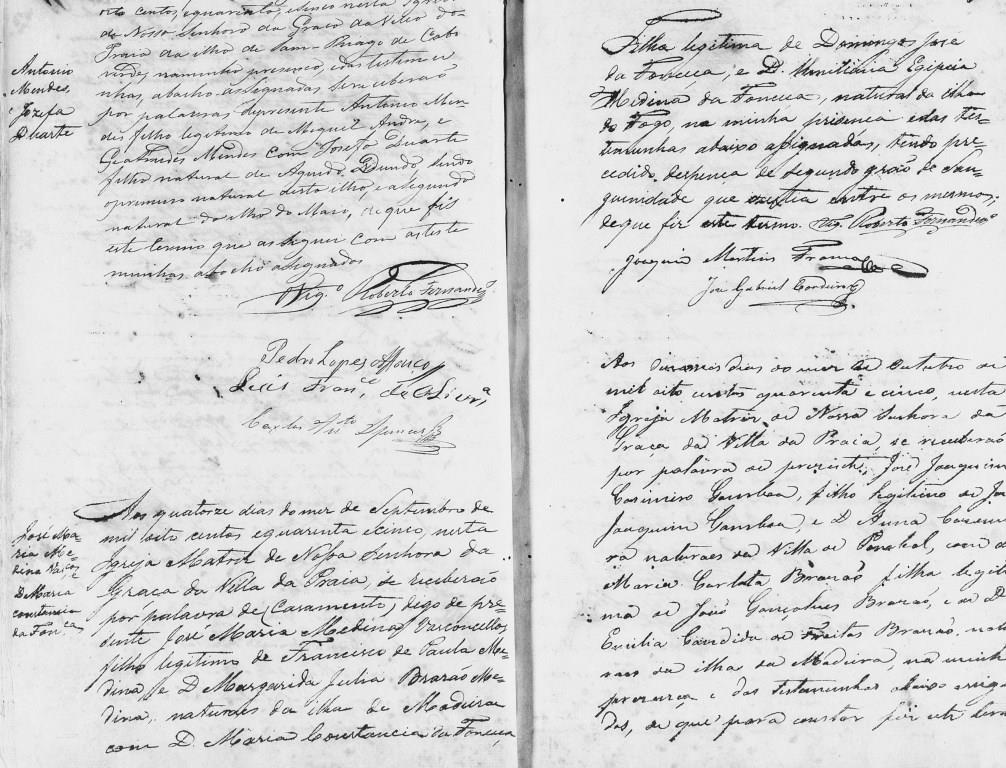 oito centos, equarenta, ecinco nesta Igreja
de Nossa Senhora da Graça da Villa da
Praia da ilha de Sam Thiago de Cabo
verde, naminha presença, edas testemu
nhas, abacho assegnadas se receberaõ
por palavras depresente Antonio Men
des filho legitimo de Miguel Andre, e
Mendes com Josefa Duarte
filha natural de sendo
oprimeiro natural desta ilha, easegunda
natural da ilha do Maio, de que fis
este termo que assegnei com as teste
munhas abacho assegnadas
Vig.º Roberto Fernandes
Antonio
Mendes,
e Jozefa
Duarte
Pedro Lopes
Luis Fran.co de Oliv.ra
Carlos
José Ma
ria Me-
dina Vascos
e
D. Maria
Constancia
da Fon.ca
Aos quatorze dias do mez de Septembro de
mil oito centos equarenta ecinco, nesta
Igreja Matriz de Nossa Senhora da
Graça da Villa da Praia, se receberaõ
por palavra de Casamento, digo de pre-
zente José Maria Medina Vasconcellos
filho legitimo de Francisco de Paula Me-
dina, e D. Margarida Julia Brazaõ Me-
dina, naturaes da ilha de Madeira
com D. Maria Constancia da Fonceca
Filha legitima de Domingos José
da Fonceca, e D. Egipcia
Medina da Fonceca, natural da ilha
do Fogo, na minha prezenca edas tes-
temunhas abaixo assignadas, tendo pre-
cedido despença de segundo gráo de San-
guinidade que existia entre os mesmos;
de que fiz este termo. Vig. Roberto Fernandes
Joaquim Martins Franco
José Gabriel Cordeiro
Aos dias do mez de Outubro de
mil oito centos quarenta e cinco, nesta
Igreja Matriz de Nossa Senhora da
Graça da Villa da Praia, se receberaõ
por palavra de prezente, José Joaquim
Casimiro Gamboa, filho legitimo de
Joaquim Gamboa, e D. Anna
naturaes da Villa de com D.
Maria Carlota Brazaõ filha legiti
ma de Joaõ Gonçalves Brazaõ, e de D.
Emilia Candida de Freitas Brazaõ, natu
raes da ilha da Madeira, na minha
prezença e das testemunhas abaixo assigna
das, de que para constar fiz este termo